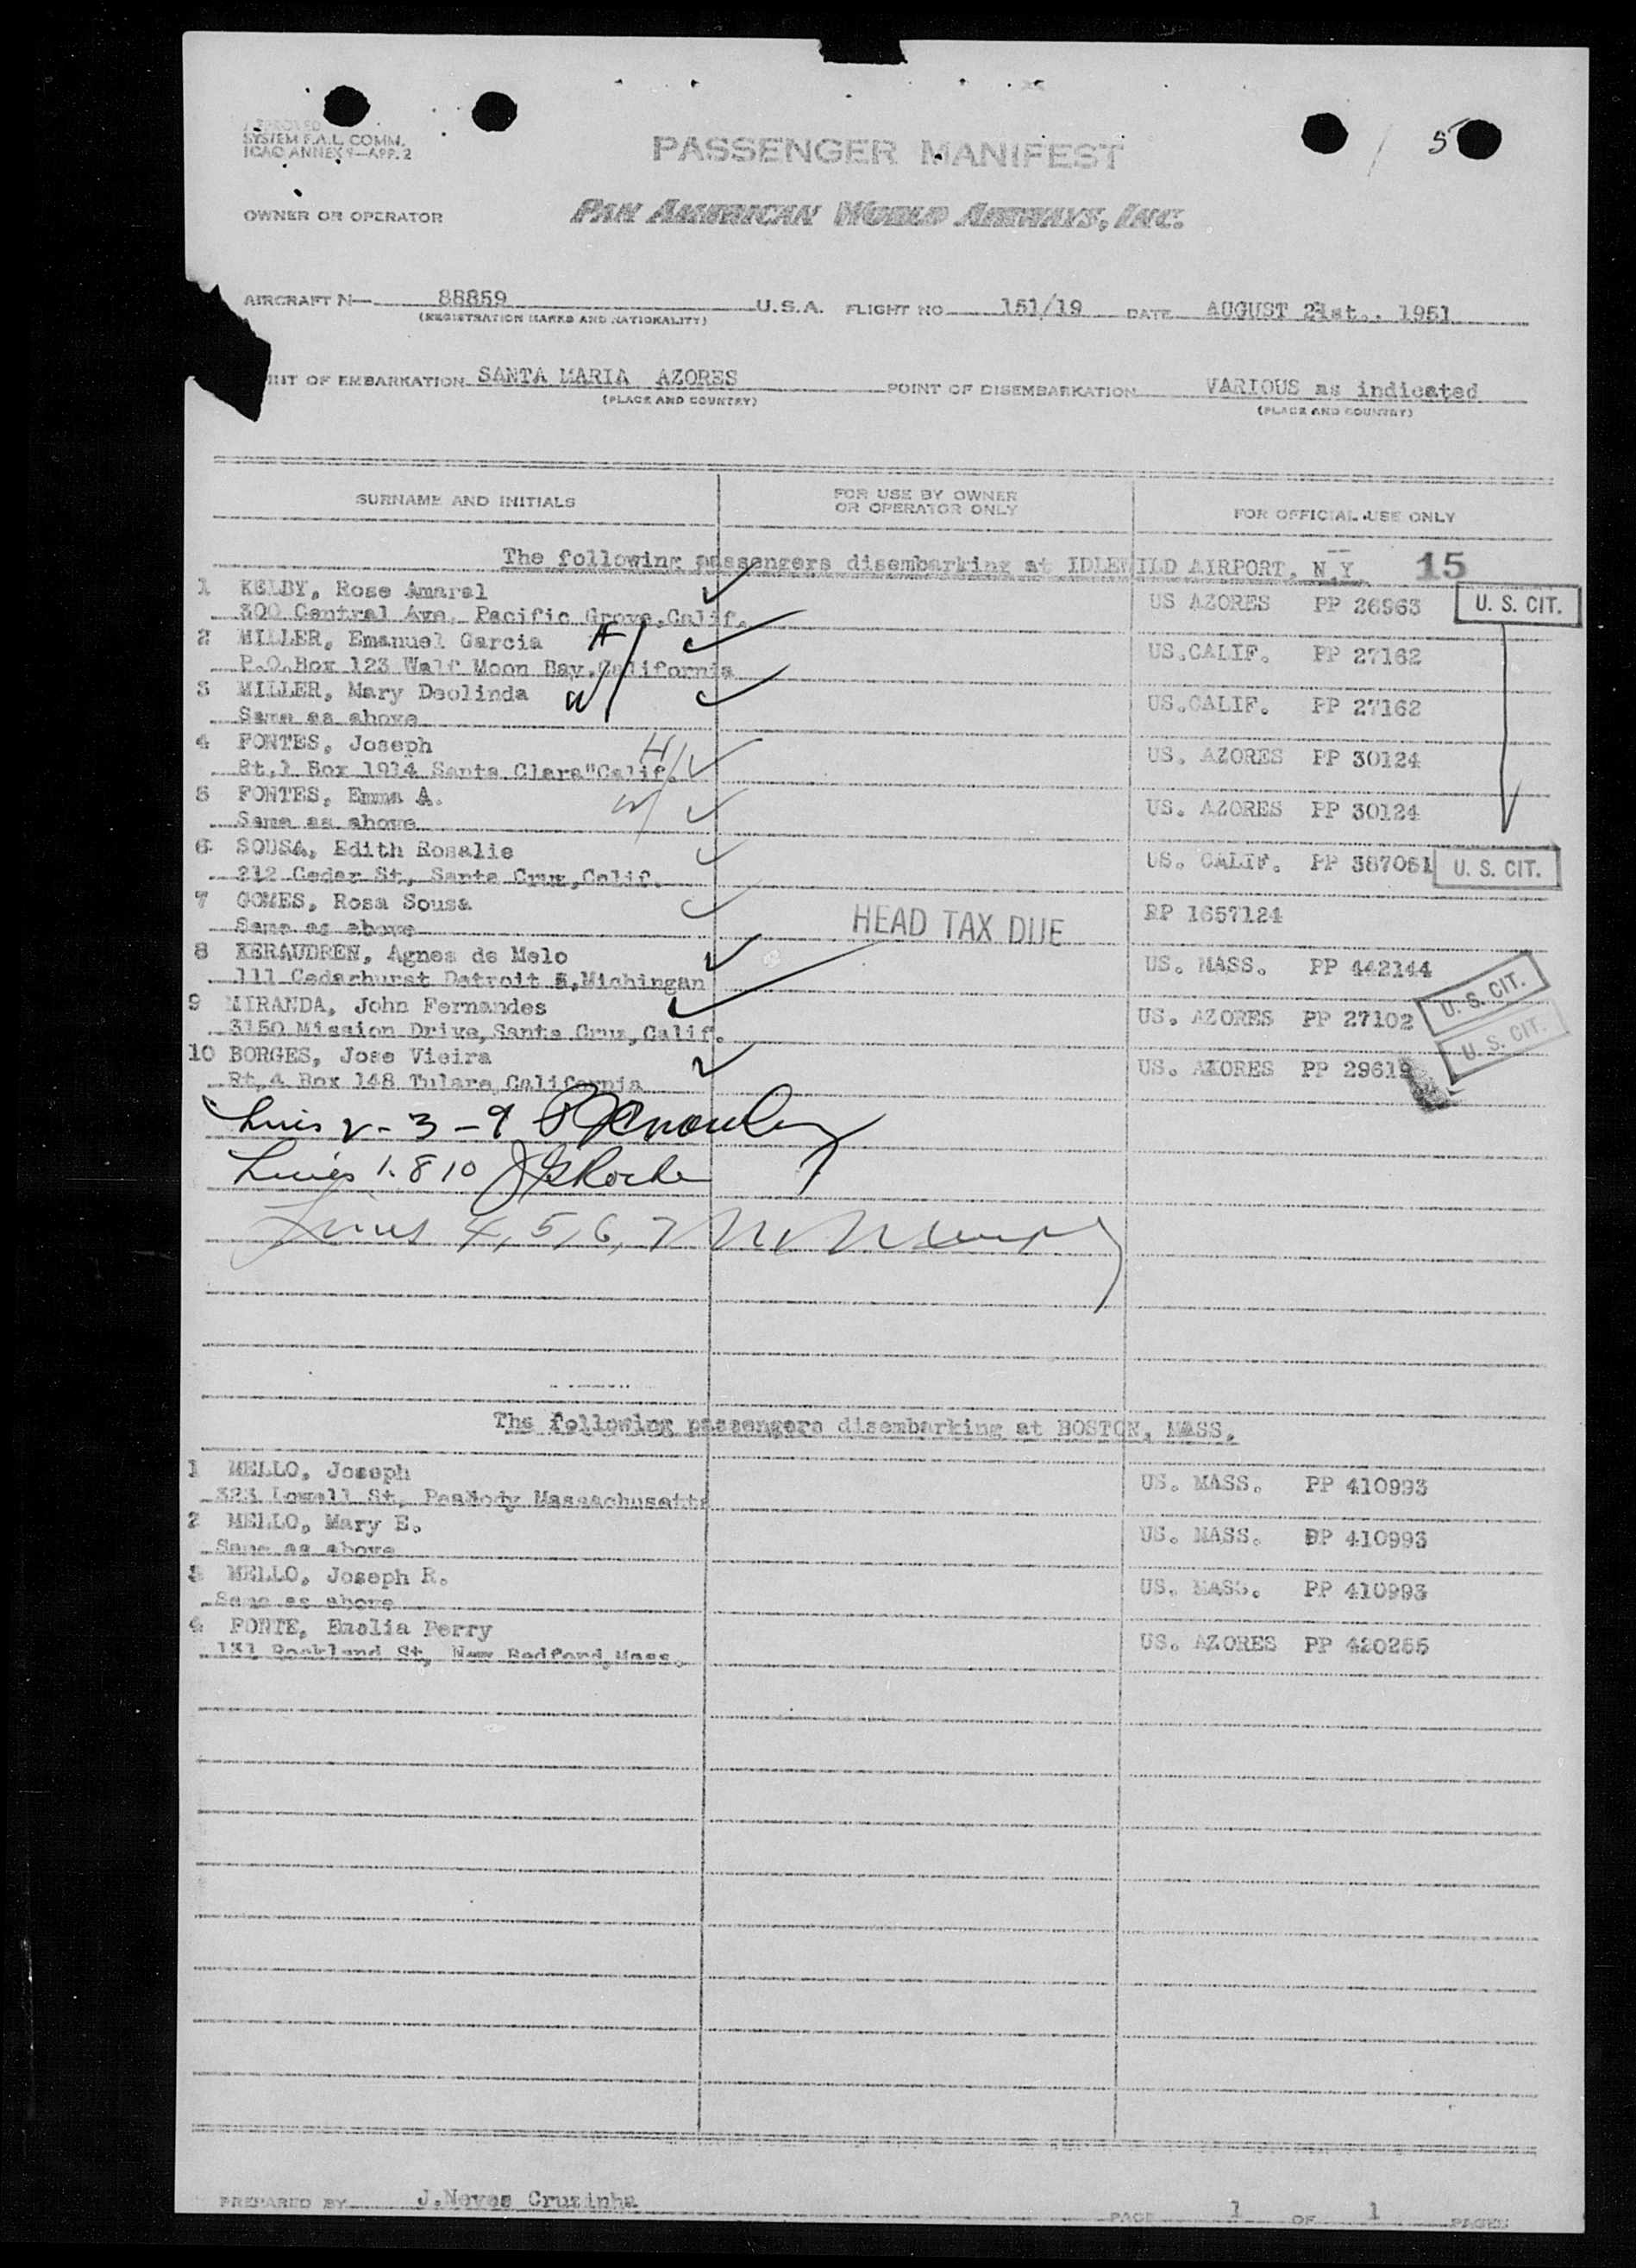 APPROVED
SYSTEM F.A.L. COMM.
ICAO ANNEX 9—APP. 2
PASSENGER MANIFEST
5
OWNER OR OPERATOR
PAN AMERICAN WORLD AIRWAYS, INC.
AIRCRAFT N— 88859 U.S.A. FLIGHT NO 151/19 DATE AUGUST 21st., 1951
(REGISTRATION MARKS AND NATIONALITY)
INT OF EMBARKATION SANTA MARIA AZORES POINT OF DISEMBARKATION VARIOUS as indicated
(PLACE AND COUNTRY) (PLACE AND COUNTRY)
SURNAME AND INITIALS FOR USE BY OWNER OR OPERATOR ONLY FOR OFFICIAL USE ONLY
The following passengers disembarking at IDLEWILD AIRPORT, N Y 15
1 KELBY, Rose Amaral US AZORES PP 26963 U. S. CIT.
300 Central Ave, Pacific Grove,Calif.
2 MILLER, Emanuel Garcia H US.CALIF. PP 27162
P.O.Box 123 Walf Moon Bay,California
3 MILLER, Mary Deolinda W US.CALIF. PP 27162
Same as above
4 FONTES, Joseph H US. AZORES PP 30124
Rt,1 Box 1914 Santa Clara"Calif.
5 FONTES, Emma A. W US. AZORES PP 30124
Same as above
6 SOUSA, Edith Rosalie US. CALIF. PP 387051 U. S. CIT.
212 Cedar St, Santa Cruz,Calif.
7 GOMES, Rosa Sousa HEAD TAX DUE RP 1657124
Same as above
8 KERAUDREN, Agnes de Melo US. MASS. PP 442144
111 Cedarhurst Detroit 5,Michingan
9 MIRANDA, John Fernandes US. AZORES PP 27102 U. S. CIT.
3150 Mission Drive,Santa Cruz,Calif. U. S. CIT.
10 BORGES, Jose Vieira US. AZORES PP 29619
Rt,4 Box 148 Tulare,California
Lines 2-3-9
Lines 1.8 10
Lines 4,5,6,7
The following passengers disembarking at BOSTON, MASS.
1 MELLO, Joseph US. MASS. PP 410993
323 Lowell St, Peabody Massachusetts
2 MELLO, Mary E. US. MASS. PP 410993
Same as above
3 MELLO, Joseph R. US. MASS. PP 410993
Same as above
4 FONTE, Emalia Perry US. AZORES PP 420255
131 Rockland St, New Bedford,Mass.
PREPARED BY J.Neves Cruzinha PAGE 1 OF 1 PAGES